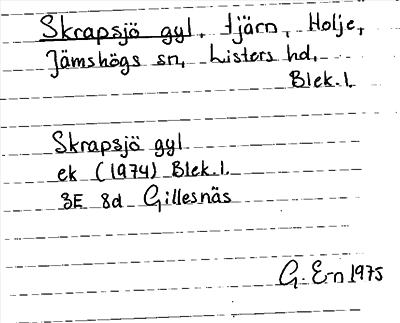 Skrapsjö gyl, tjärn, Holje,
Jämshögs sn, Listers hd,
Blek.l.
Skrapsjö gyl
ek (1974) Blek.l.
3E 8d Gillesnäs
G. E-n 1975